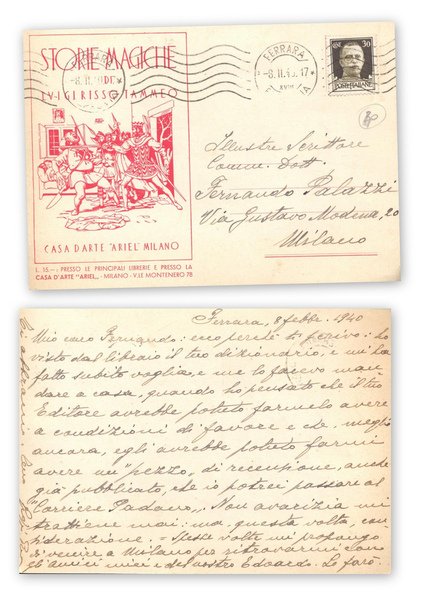 STORIE MAGICHE
DI
LUIGI RISSO TAMMEO
CASA D'ARTE "ARIEL" MILANO
L. 15.— : PRESSO LE PRINCIPALI LIBRERIE E PRESSO LA
CASA D'ARTE "ARIEL" - MILANO - V.LE MONTENERO 78
FERRARA
-8.II.40.17
XVIII
CENT. 30
POSTE ITALIANE
Illustre Scrittore
Comm. Dott.
Fernando Palazzi
Via Gustavo Modena, 20
Milano
Ferrara, 8 febbr. 1940
Mio caro Fernando: ecco perché ti scrivo: ho
visto dal libraio il tuo dizionario, e mi ha
fatto subito voglia, e me lo facevo man-
dare a casa, quando ho pensato che il tuo
Editore avrebbe potuto farmelo avere
a condizioni di favore e che, meglio
ancora, egli avrebbe potuto farmi
avere un "pezzo" di recensione, anche
già pubblicato, che io potrei passare al
"Corriere Padano". Non avarizia mi
trattiene mai: ma, questa volta, con-
siderazione. = Spesse volte mi propongo
di venire a Milano per ritrovarmi con
gli amici miei e del nostro Edoardo. Lo farò.